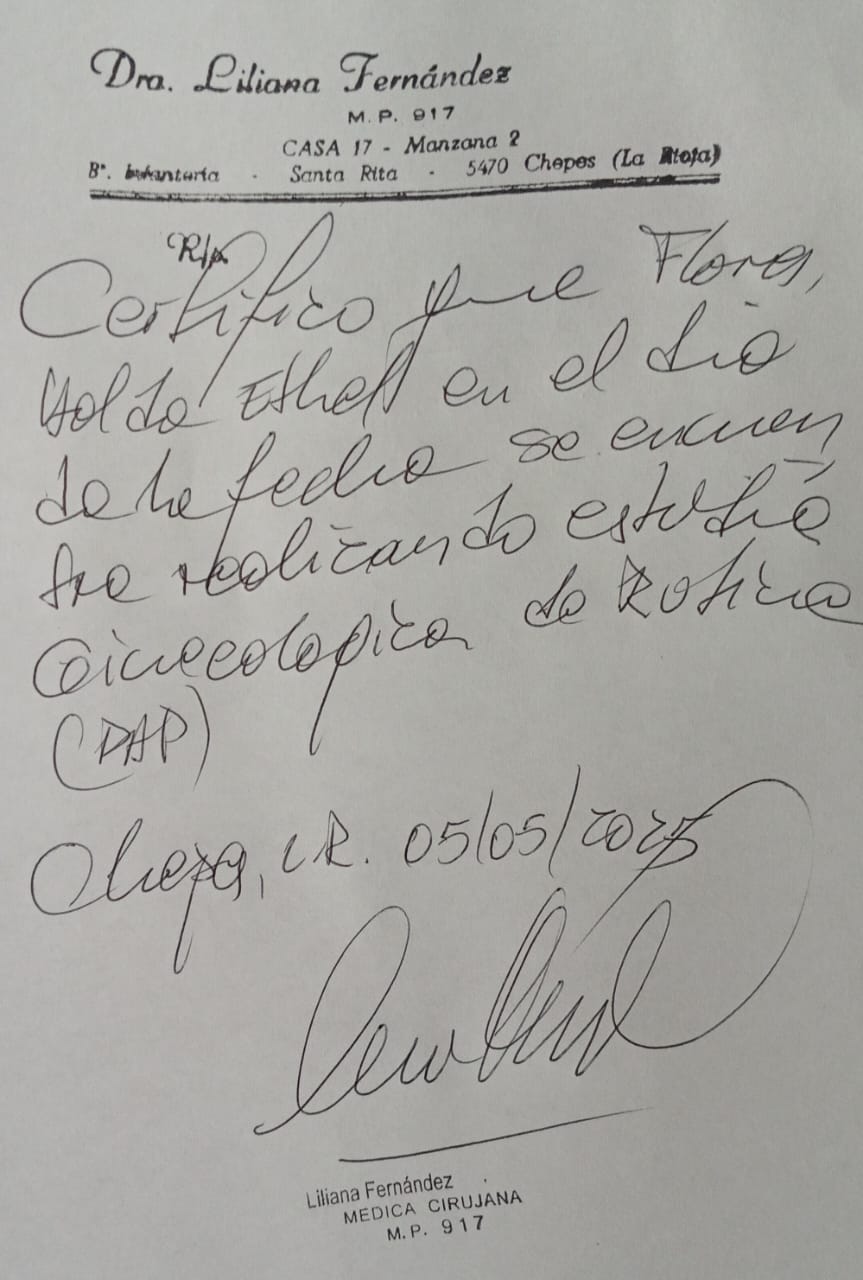 Dra. Liliana Fernández
M.P. 917
CASA 17 - Manzana 2
B°. Infantería - Santa Rita - 5470 Chepes (La Rioja)
R/p
Certifico que Flores,
Ethel en el día
de la fecha se encuen
tra realizando estudio
Ginecologica de Rotina
(PAP)
Chepes, LR. 05/05/2025
Liliana Fernández
MEDICA CIRUJANA
M.P. 917